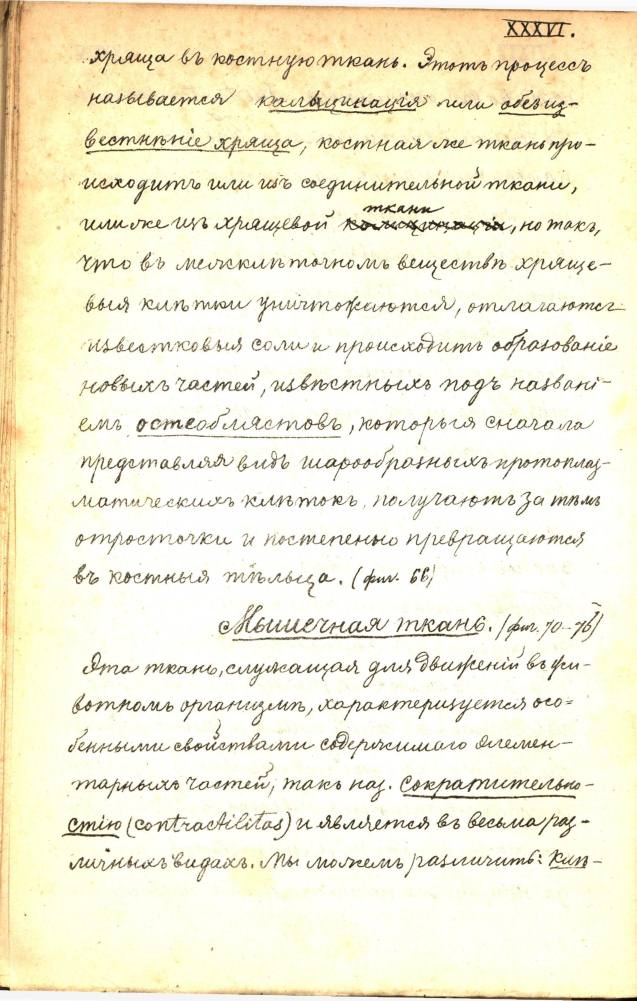 XXXVI.
хряща въ костную ткань. Этотъ процессъ
называется кальцинація или обезиз-
вестнѣніе хряща, костная же ткань про-
исходитъ или изъ соединительной ткани,
ткани
или же изъ хрящевой кальцинаціи, но такъ,
что въ межклѣточномъ веществѣ хряще-
выя клѣтки уничтожаются, отлагаются
известковыя соли и происходитъ образованіе
новыхъ частей, извѣстныхъ подъ названі-
емъ остеобластовъ, которыя сначала
представляя видъ шарообразныхъ протоплаз-
матическихъ клѣтокъ, получаютъ за тѣмъ
отросточки и постепенно превращаются
въ костныя тѣльца. (фиг. 66)
Мышечная ткань. (фиг. 70-76)
Эта ткань, служащая для движеній въ жи-
вотномъ организмѣ, характеризуется осо-
бенными свойствами содержимаго элемен-
тарныхъ частей, такъ наз. сократительно-
стію (contractilitas) и является въ весьма раз-
личныхъ видахъ. Мы можемъ различить: клѣ-